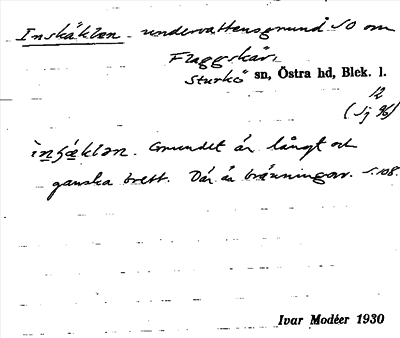 Inskäklan - undervattensgrund SO om
Flaggskär,
Sturkö sn, Östra hd, Blek. l.
12
(Sj 96)
ìnʃæklan. Grundet är långt och
ganska brett. Där är bränningar. s. 108.
Ivar Modéer 1930